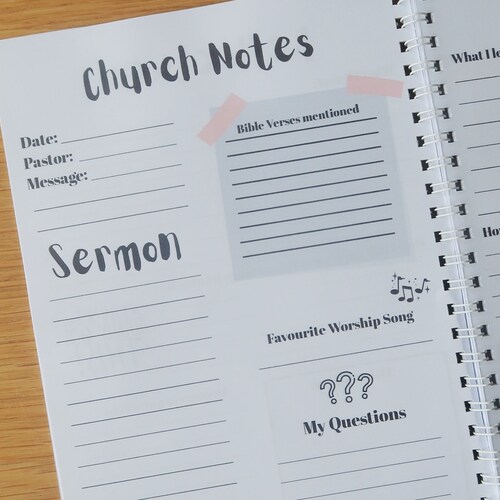 Church Notes
Date:
Pastor:
Message:
Bible Verses mentioned
Sermon
Favourite Worship Song
???
My Questions
What I